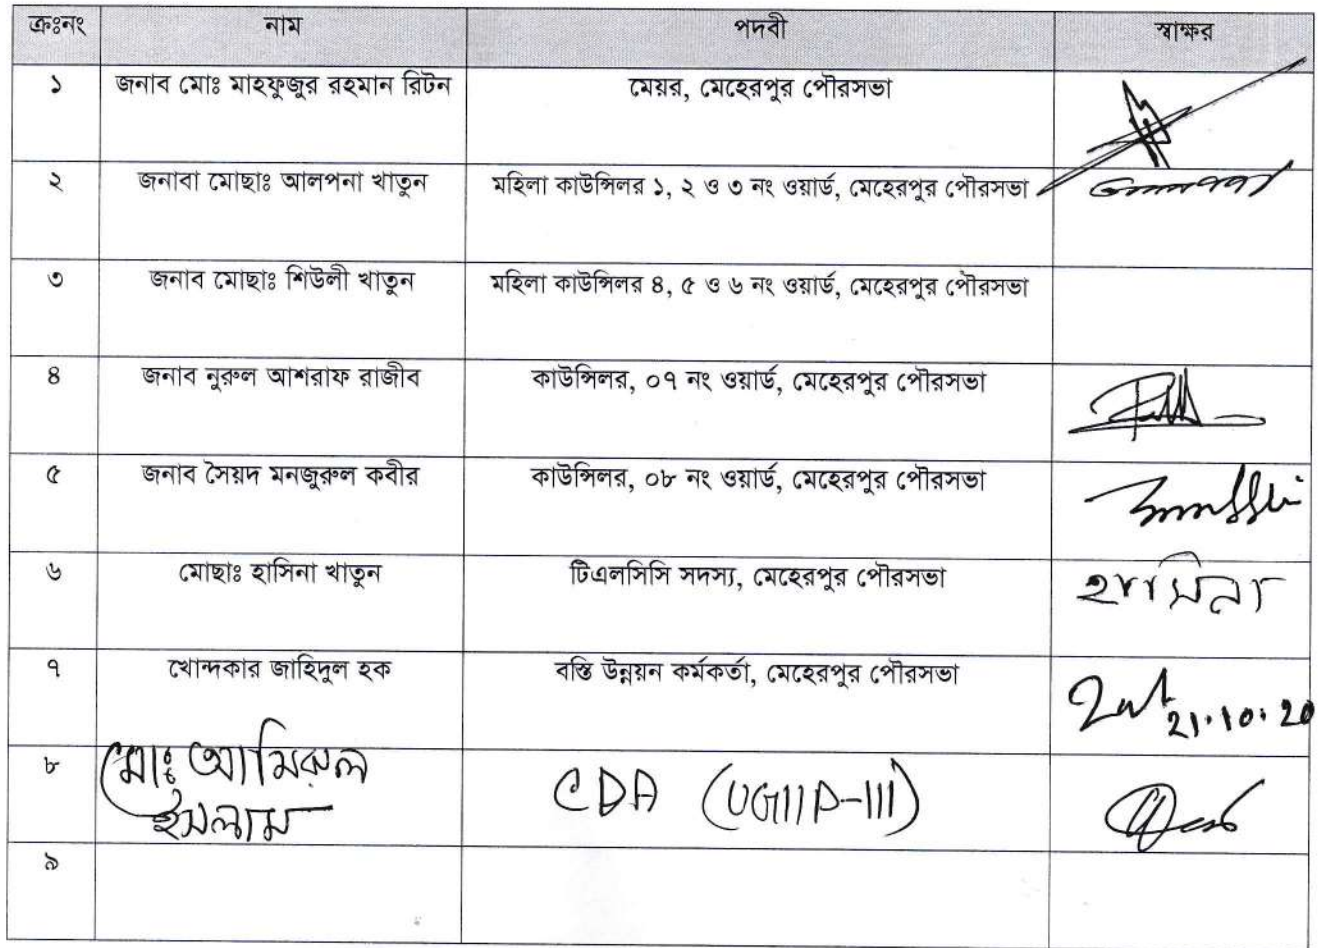 ক্রঃনং নাম পদবী স্বাক্ষর
১ জনাব মোঃ মাহফুজুর রহমান রিটন মেয়র, মেহেরপুর পৌরসভা
২ জনাবা মোছাঃ আলপনা খাতুন মহিলা কাউন্সিলর ১, ২ ও ৩ নং ওয়ার্ড, মেহেরপুর পৌরসভা
৩ জনাব মোছাঃ শিউলী খাতুন মহিলা কাউন্সিলর ৪, ৫ ও ৬ নং ওয়ার্ড, মেহেরপুর পৌরসভা
৪ জনাব নুরুল আশরাফ রাজীব কাউন্সিলর, ০৭ নং ওয়ার্ড, মেহেরপুর পৌরসভা
৫ জনাব সৈয়দ মনজুরুল কবীর কাউন্সিলর, ০৮ নং ওয়ার্ড, মেহেরপুর পৌরসভা
৬ মোছাঃ হাসিনা খাতুন টিএলসিসি সদস্য, মেহেরপুর পৌরসভা হাসিনা
৭ খোন্দকার জাহিদুল হক বস্তি উন্নয়ন কর্মকর্তা, মেহেরপুর পৌরসভা
21.10.20
৮ মোঃ আমিরুল CDA (UGIIP-III)
ইসলাম
৯